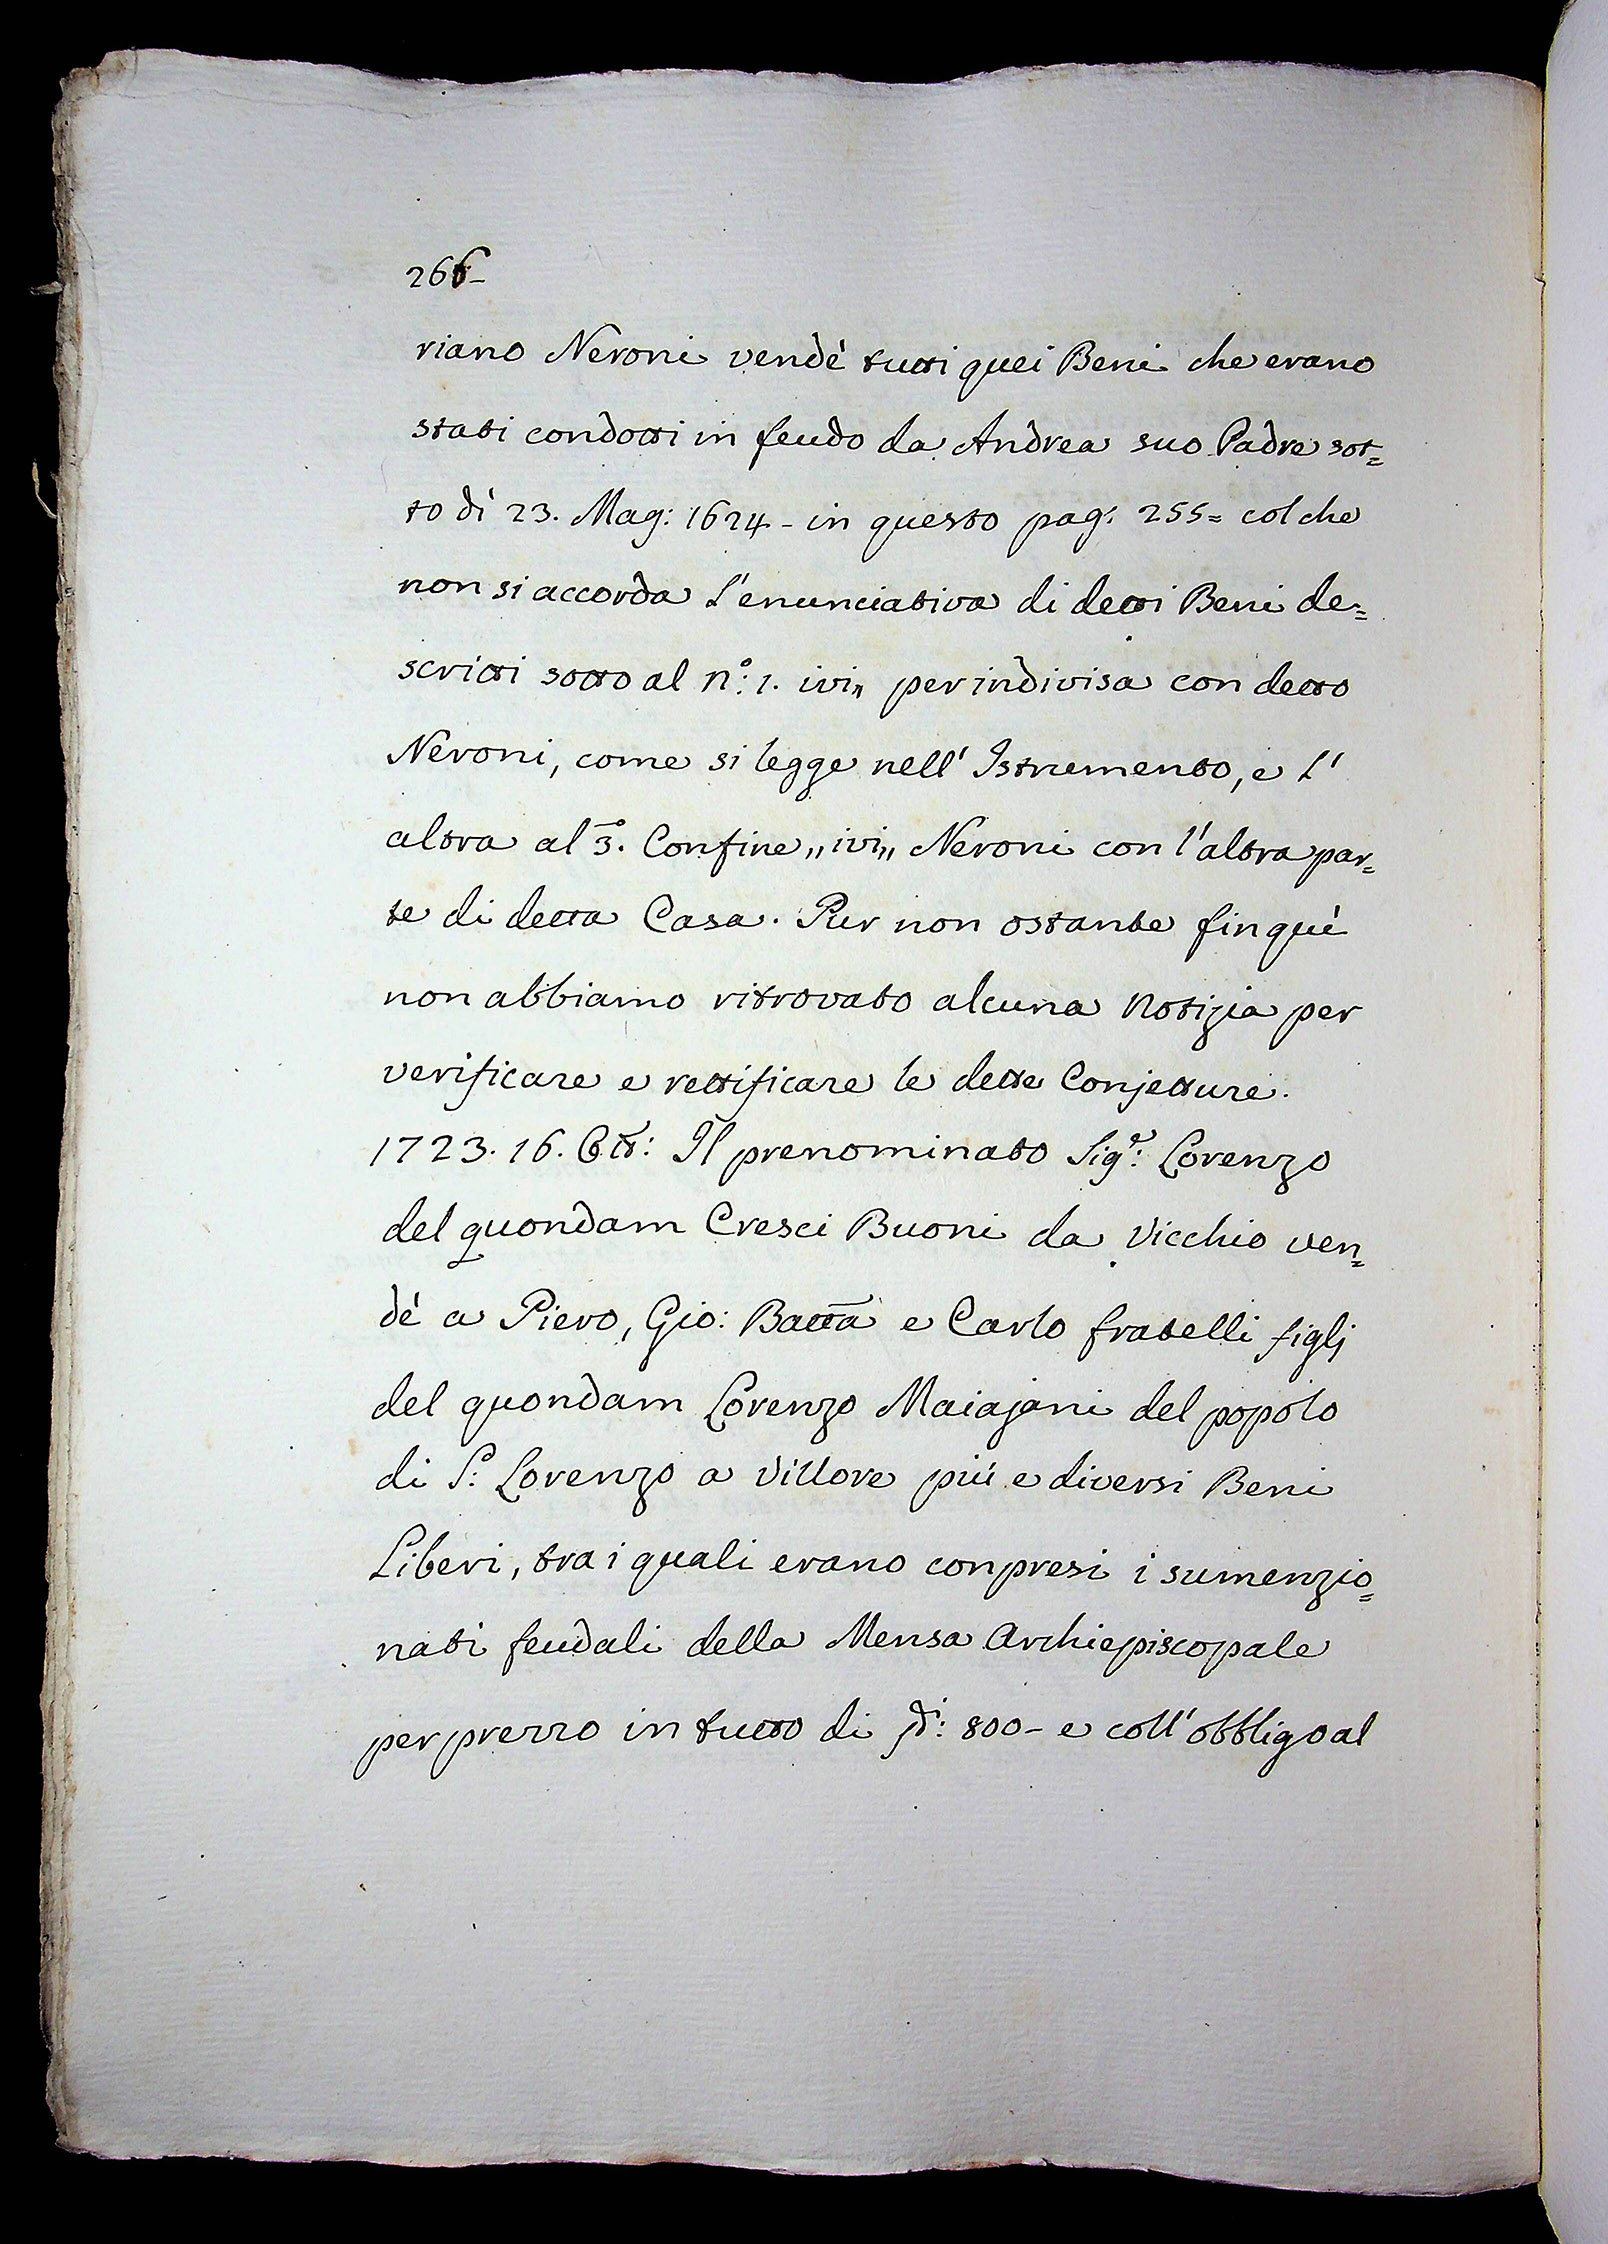 266-
riano Neroni vendè tutti quei Beni che erano
stati condotti in feudo da Andrea suo Padre sot=
to dì 23. Mag: 1624 - in questo pag: 255 = col che
non si accorda l'enunciativa di detti Beni de=
scritti sotto al n.º: 1. ivi,, per indivisa con detto
Neroni, come si legge nell' Istrumento, e l'
altra al 3.º Confine ,, ivi,, Neroni con l'altra par=
te di detta Casa. Pur non ostante fin quì
non abbiamo ritrovato alcuna Notizia per
verificare e rettificare le dette Conjetture.
1723. 16. Ott: Il prenominato Sig.e: Lorenzo
del quondam Cresci Buoni da Vicchio ven=
dè a Piero, Gio: Batta e Carlo fratelli figlj
del quondam Lorenzo Maiajani del popolo
di S: Lorenzo a Villore più e diversi Beni
Liberi, tra i quali erano conpresi i sumenzio=
nati feudali della Mensa Archiepiscopale
per prezzo in tutto di 800 - e coll' obbligo al